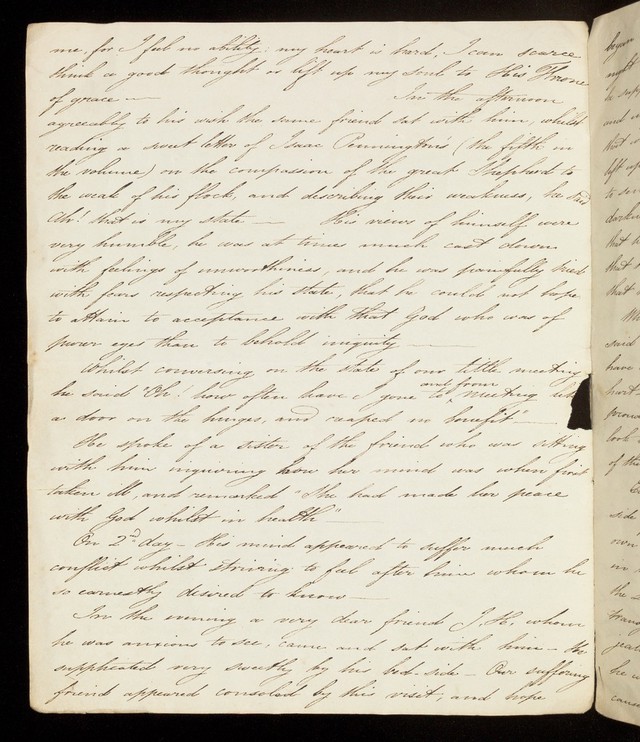 me, for I feel no ability: my heart is hard, I can scarce
think a good thought or lift up my soul to His Throne
of grace — In the afternoon
agreeably to his wish the same friend sat with him, whilst
reading a sweet letter of Isaac Pennington's (the fifth in
the volume) on the compassion of the great Shepherd to
the weak of his flock, and describing their weakness, he said
Ah! that is my state — His views of himself were
very humble, he was at times much cast down
with feelings of unworthiness, and he was painfully tried
with fears respecting his state, that he could not hope
to attain to acceptance with that God who was of
purer eyes than to behold iniquity —
Whilst conversing on the state of our little meeting
he said "Oh! how often have I gone to and from meeting like
a door on the hinges, and reaped no benefit" —
He spoke of a sister of the friend who was sitting
with him inquiring how her mind was when first
taken ill, and remarked "She had made her peace
with God whilst in health" —
On 2nd day — His mind appeared to suffer much
conflict whilst striving to feel after him whom he
so earnestly desired to know —
In the evening a very dear friend J. H. whom
he was anxious to see, came and sat with him —
supplicated very sweetly by his bed-side — Our suffering
friend appeared consoled by this visit, and hope
began
night
he supp
and
that
left up
to
that
that
that
said
have
hard
look
of the
side
own
the
he
cause